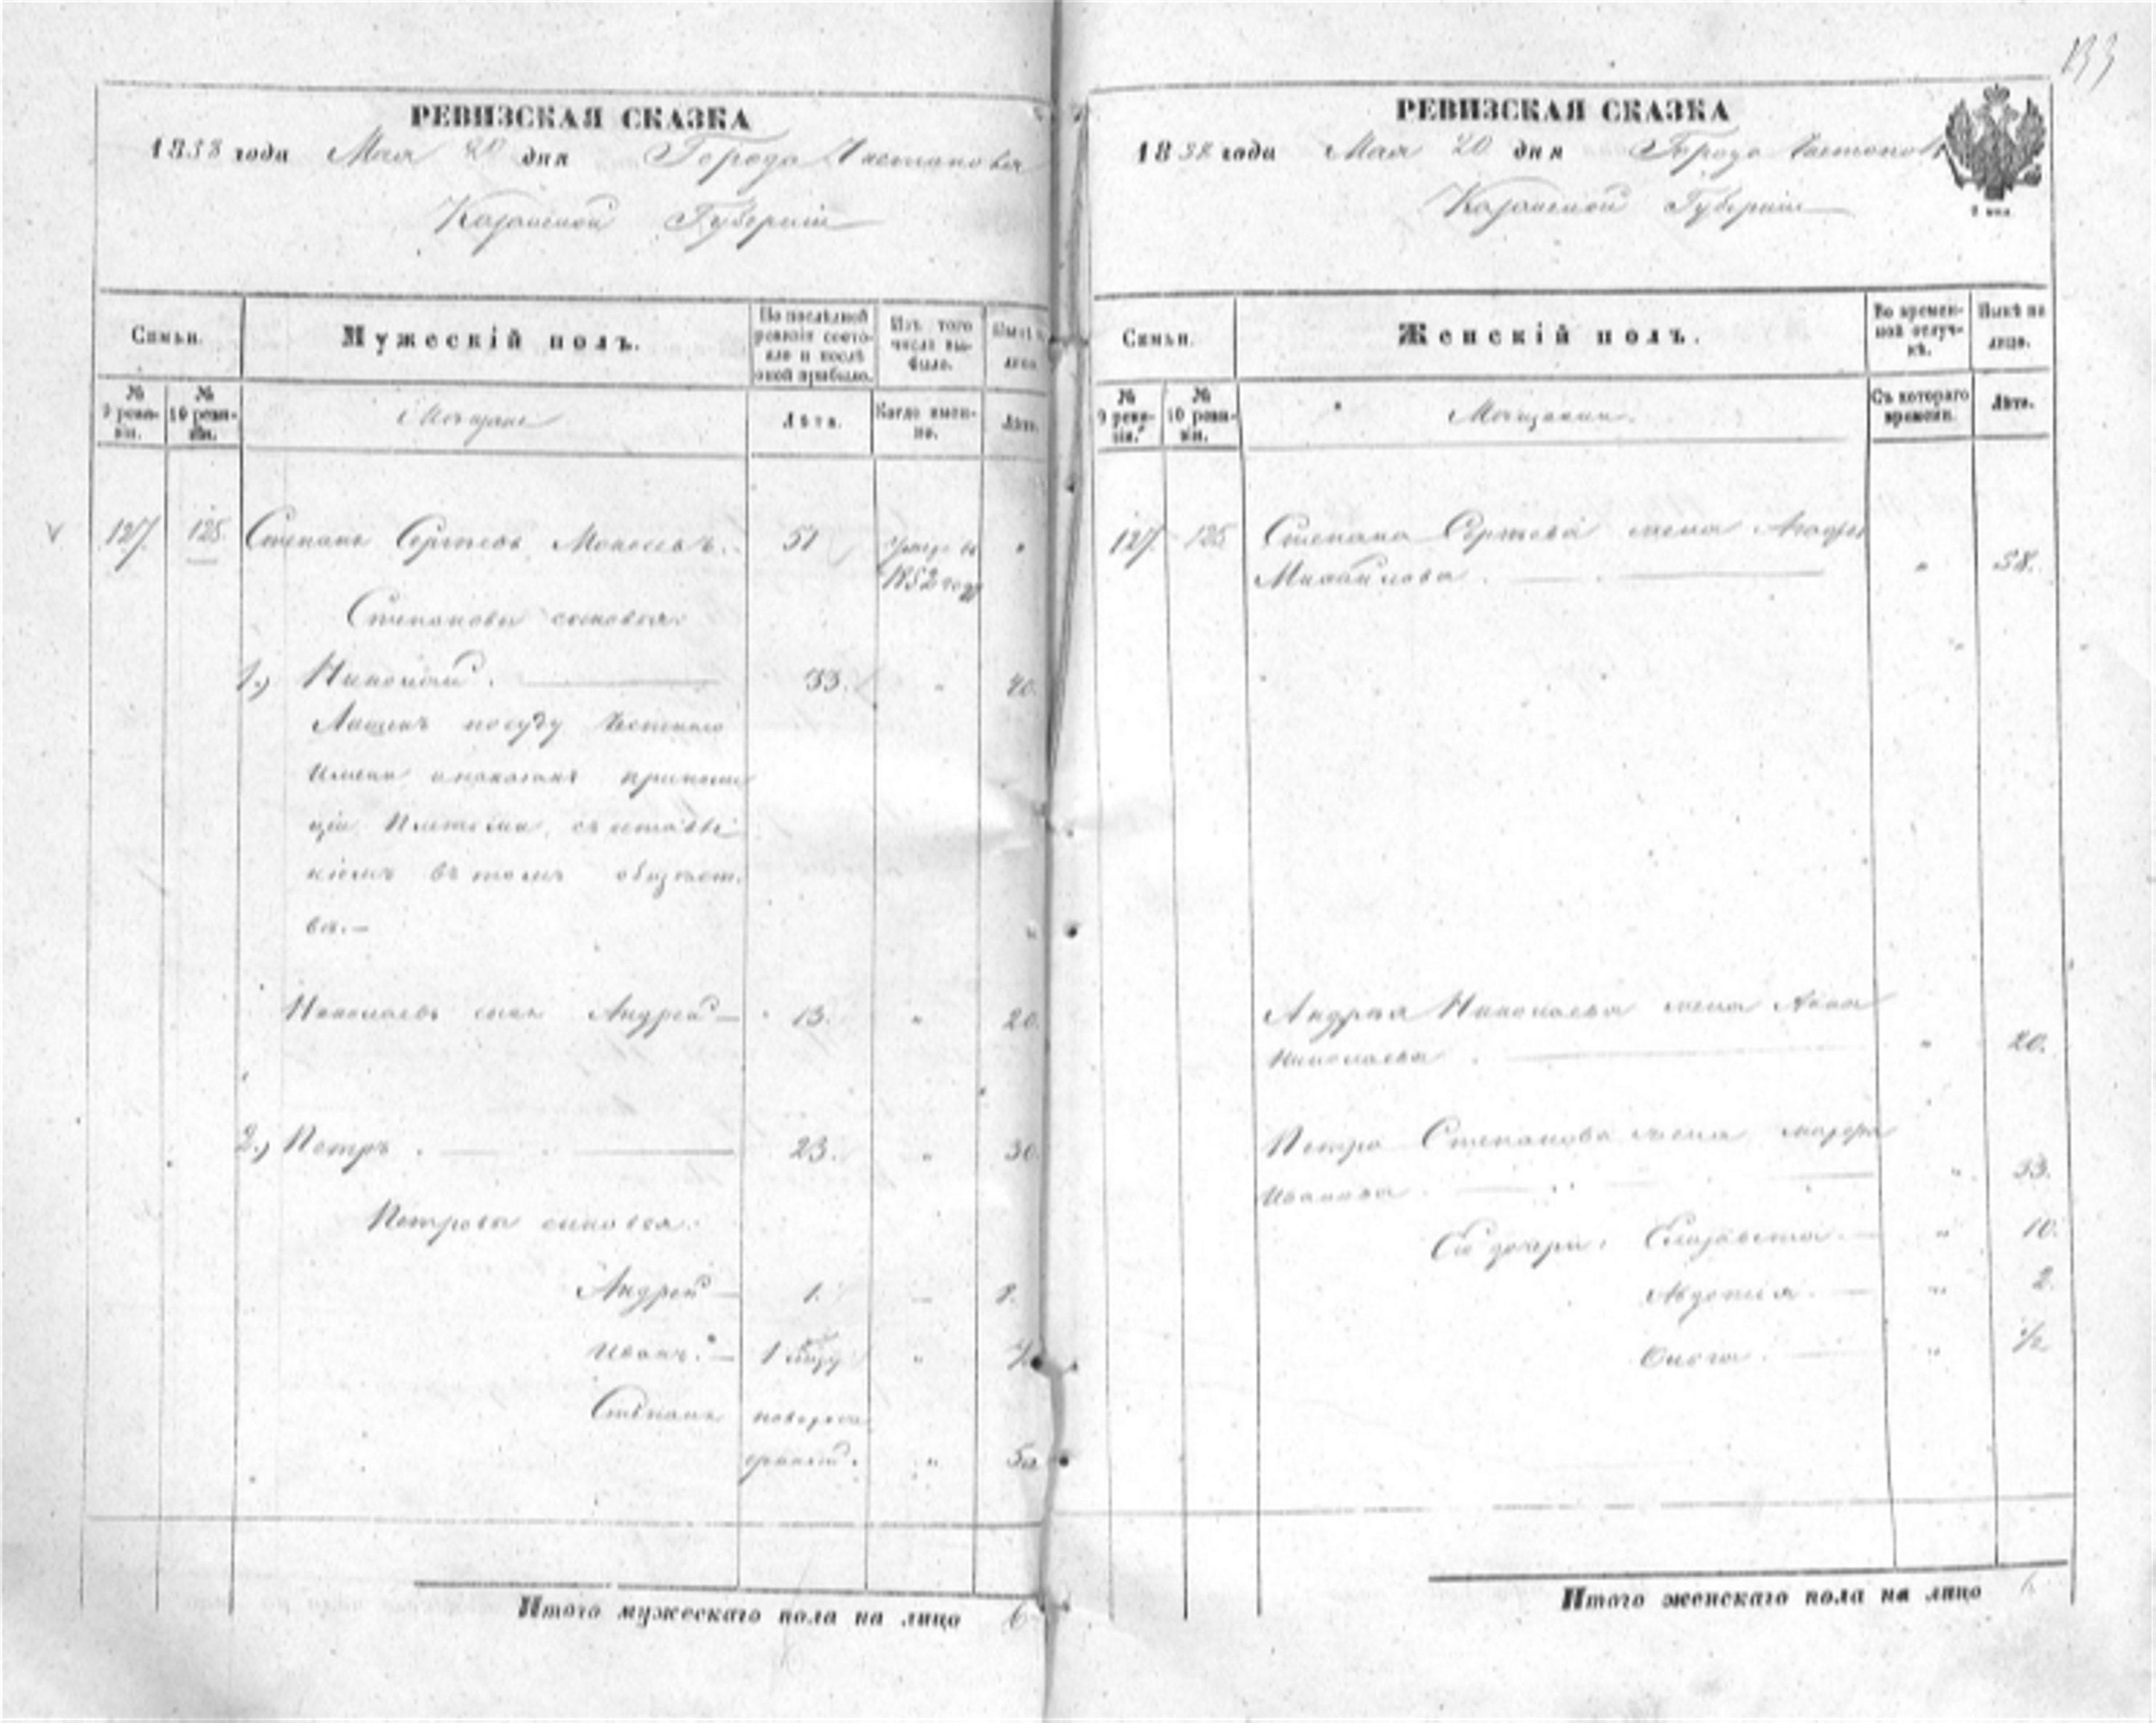 133
РЕВИЗСКАЯ СКАЗКА
1858 года Мая 20 дня Города Чистополя
Казанской Губерніи
Семьи.
Мужескій полъ.
По послѣдней ревизіи состояло и послѣ оной прибыло.
Изъ того числа выбыло.
Нынѣ на лицо.
№ 9 ревизіи.
№ 10 ревизіи.
Мѣщане
Лѣта.
Когда именно.
Лѣта.
127 125. Степанъ Сергѣевъ 51 1852 году "
Степановы сыновья:
1.) Николай. 33. " 40.
Лишенъ по суду
имени и наказанъ
плетьми, съ оставле
ніемъ въ томъ общест
вѣ.—
Николаевъ сынъ Андрей— 13. " 20.
2.) Петръ. 23. " 30.
Петровы сыновья:
Андрей— 1. 8.
Иванъ.— "
Степанъ новорож
денный. "
Итого мужескаго пола на лицо 6
РЕВИЗСКАЯ СКАЗКА
1858 года Мая 20 дня Города Чистополя
Казанской Губерніи
Семьи.
Женскій полъ.
Во временной отлучкѣ.
Нынѣ на лицо.
№ 9 ревизіи.
№ 10 ревизіи.
Мѣщанки.
Съ котораго времени.
Лѣта.
127. 125 Степана Сергѣева жена
Михайлова. " 58.
Андрея Николаева жена Анна
Николаева. " 20.
Петра Степанова жена
Иванова. " 33.
Ея дочери: Елизавета.— " 10.
Авдотья.— " 2.
Ольга.— " 1/2
Итого женскаго пола на лицо 6